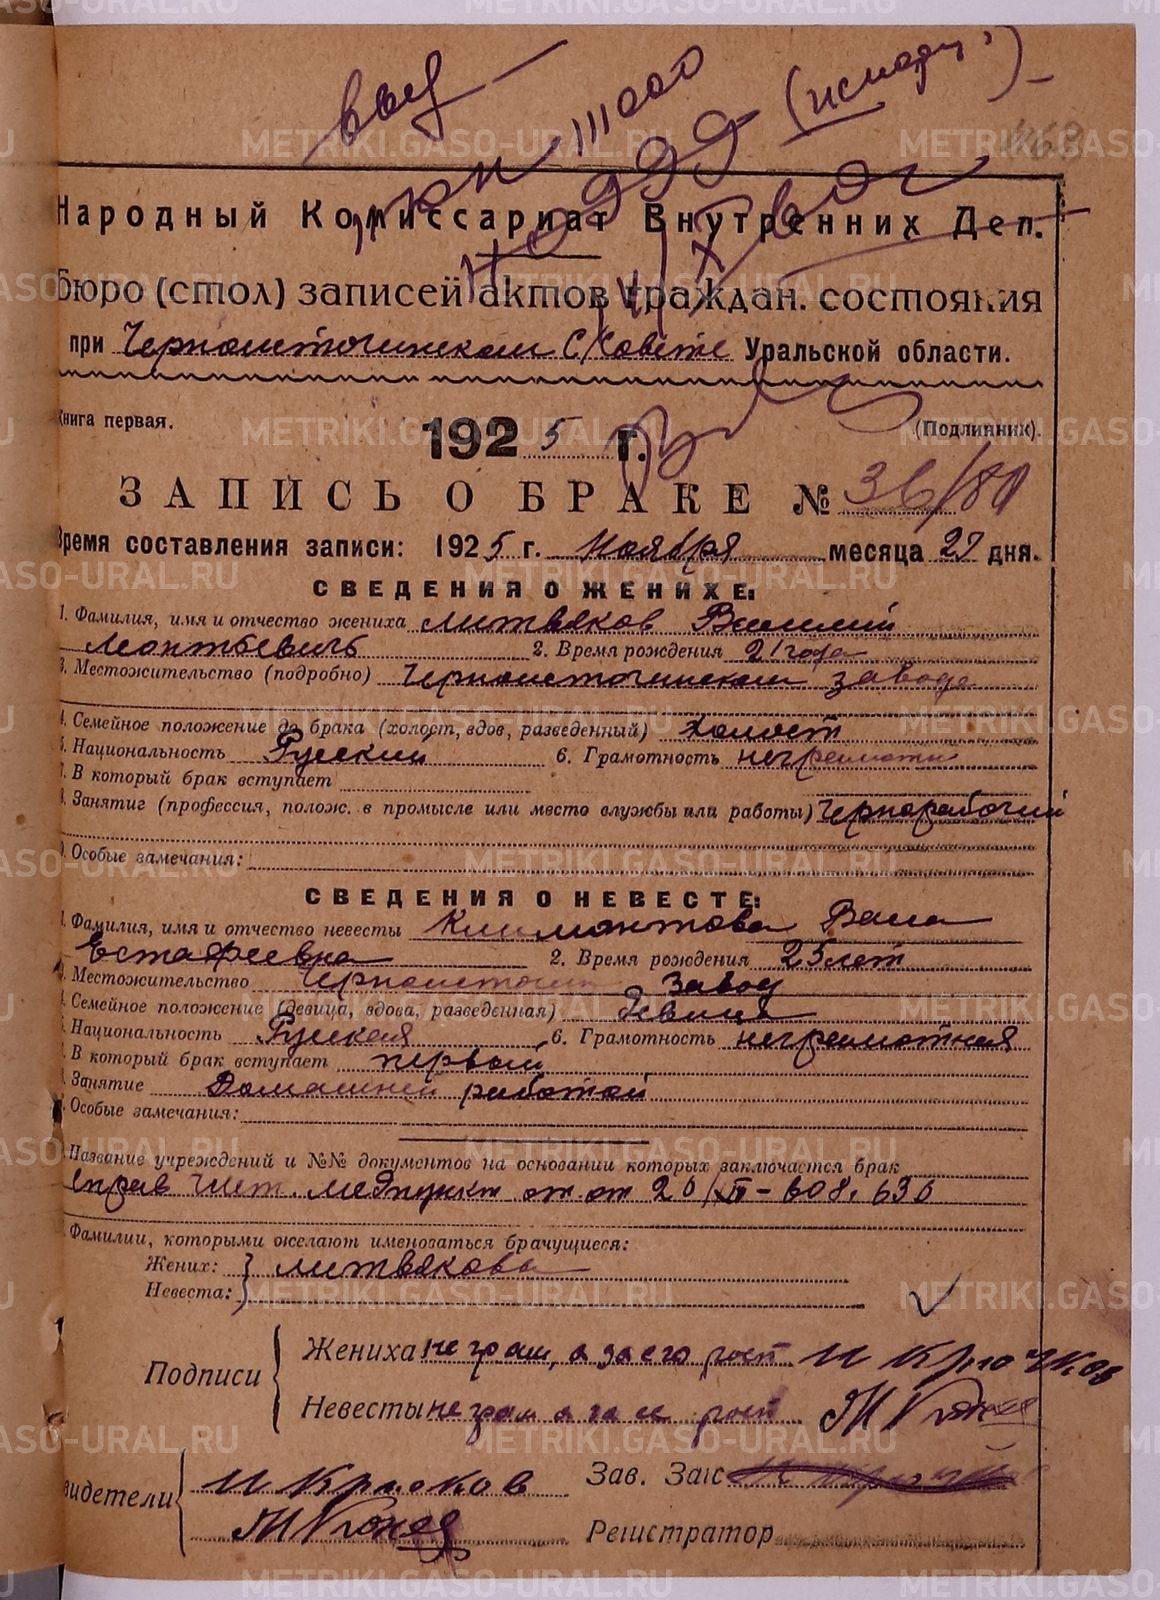 (исмодц.)
Народный Комиссариат Внутренних Дел.
бюро (стол) записей актов граждан. состояния
при Черноисточинском С/Совете Уральской области.
Книга первая.
1925 г. (Подлинник).
ЗАПИСЬ О БРАКЕ № 36/80
Время составления записи: 1925 г. Ноября месяца 27 дня.
СВЕДЕНИЯ О ЖЕНИХЕ:
1. Фамилия, имя и отчество жениха Литвяков Василий
Леонтьевичь 2. Время рождения 21 года
3. Местожительство (подробно) Черноисточинском заводе
4. Семейное положение до брака (холост, вдов, разведенный) холост
5. Национальность Русский 6. Грамотность неграмотн
7. В который брак вступает
8. Занятие (професcия, полож. в промысле или место службы или работы) Чернорабочий
9. Особые замечания:
СВЕДЕНИЯ О НЕВЕСТЕ:
1. Фамилия, имя и отчество невесты Климантова Васа
Естафеевна 2. Время рождения 25 лет
3. Местожительство Черноисточин завод
4. Семейное положение (девица, вдова, разведенная) Девица
5. Национальность Русская 6. Грамотность неграмотная
7. В который брак вступает первый
8. Занятие Домашней работой
9. Особые замечания:
Название учреждений и №№ документов на основании которых заключается брак
справ Чист. медпункт от от 20/XI - 608, 630
Фамилии, которыми желают именоваться брачущиеся:
Жених: } Литвякова
Невеста:
Подписи { Жениха не грам, а за его рост И Крючков
Невесты не грам а за ее рост
Свидетели { И Крюков Зав. Загс
Регистратор
METRIKI.GASO-URAL.RU